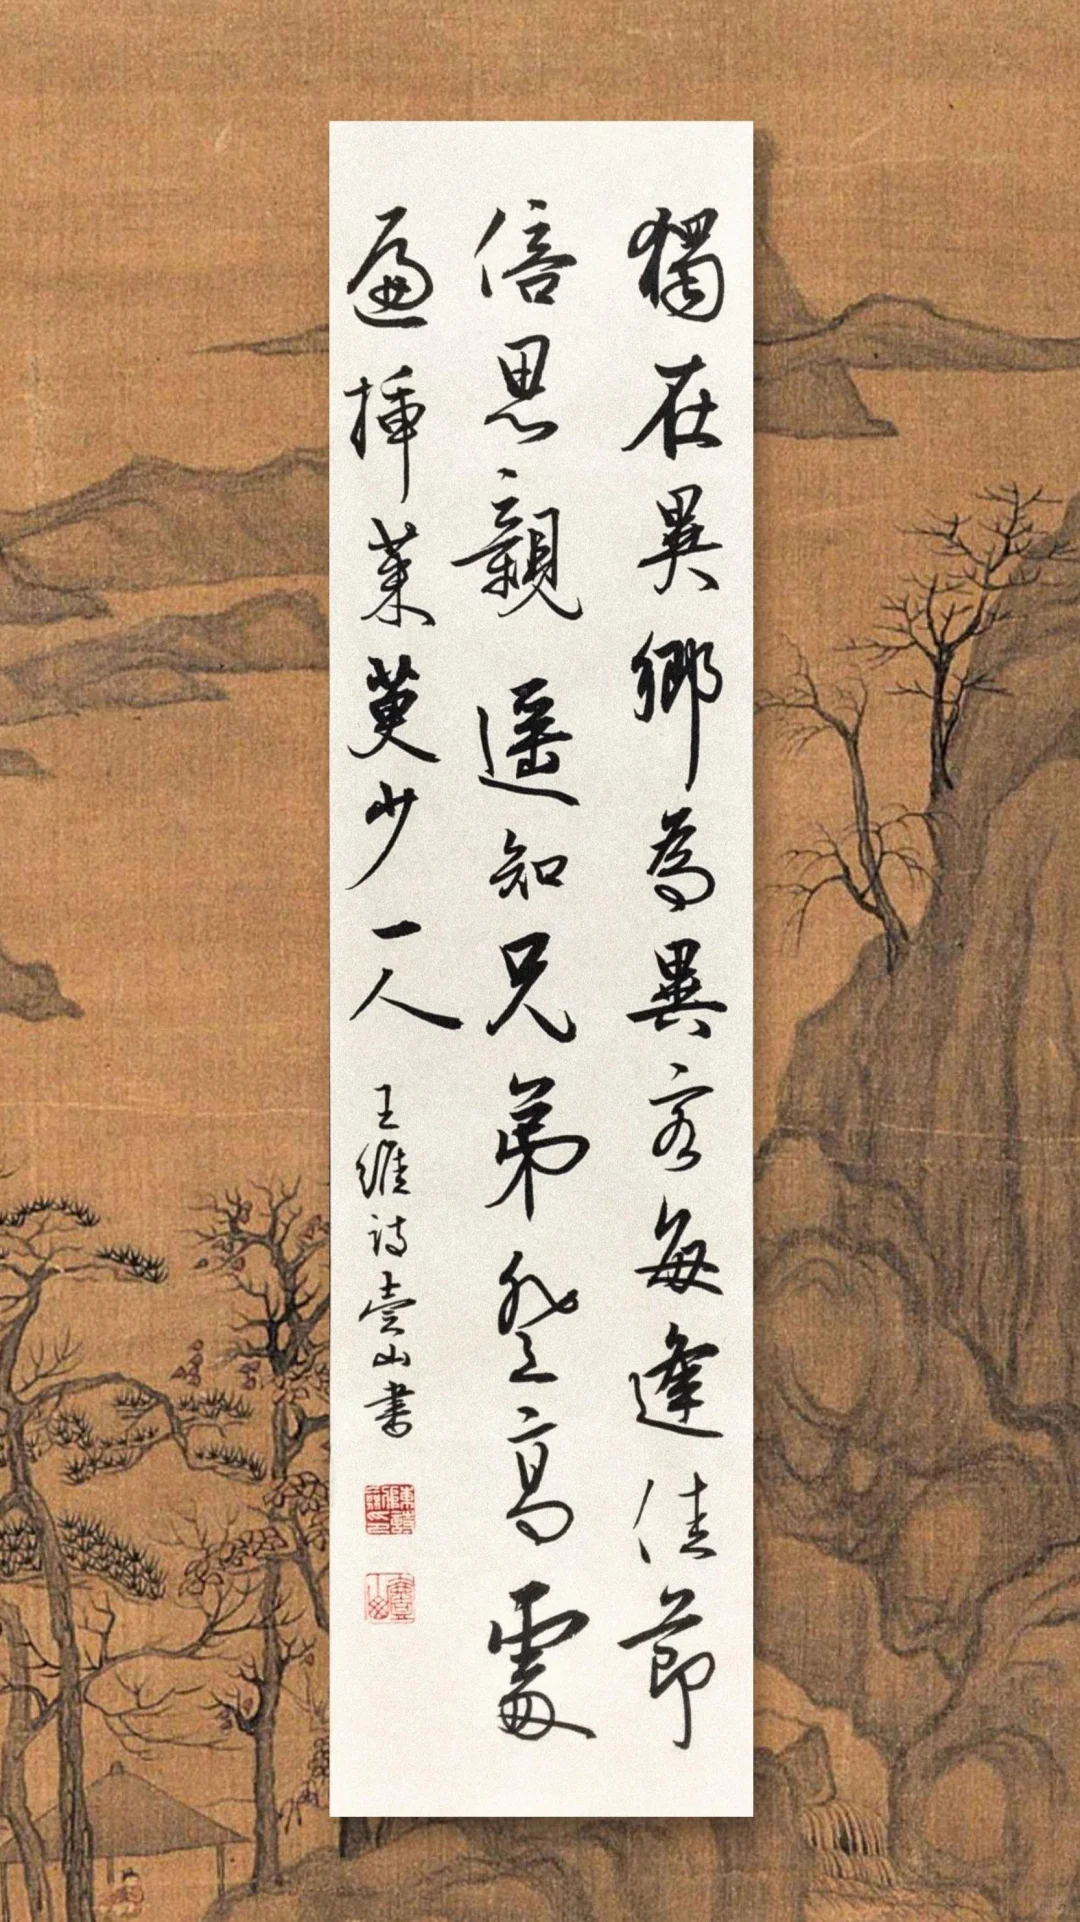 獨在異鄉為異客每逢佳節
倍思親遥知兄弟登高處
遍插茱萸少一人
王維詩壹山書